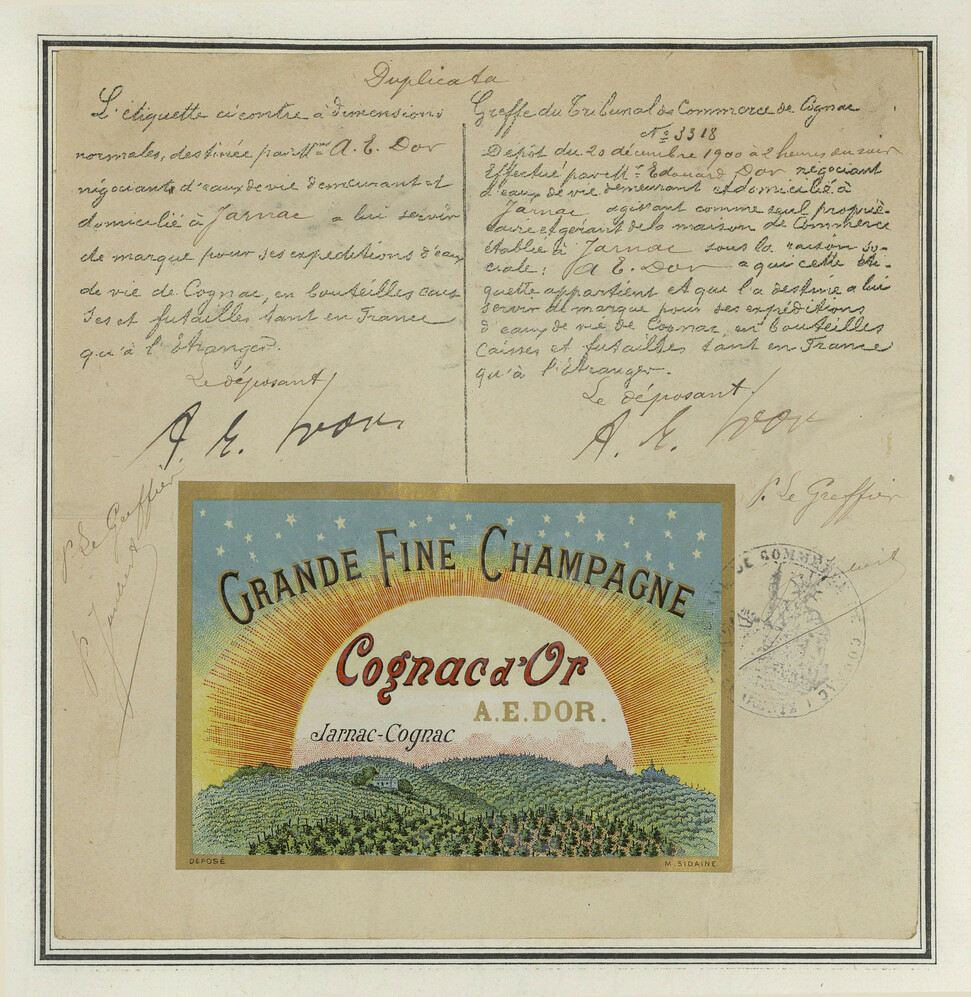 Duplicata
L'étiquette ci contre à dimensions
normales, destinée par Mr A. E. Dor
négociant d'eaux de vie demeurant et
domicilié à Jarnac a lui servir
de marque pour ses expéditions d'eaux
de vie de Cognac, en bouteilles cais
ses et futailles tant en France
qu'à l'étranger.
Le déposant
A. E. Dor
P. Le Greffier
Greffe du Tribunal de Commerce de Cognac
No 3318
Dépôt du 20 décembre 1900 à 2 heures du soir
Effectué par Mr. Edouard Dor négociant
d'eaux de vie demeurant et domicilié à
Jarnac, agissant comme seul proprié-
taire et gérant de la maison de Commerce
établie à Jarnac sous la raison so-
ciale: A E. Dor a qui cette éti-
quette appartient et que l'a destine a lui
servir de marque pour ses expéditions
d'eaux de vie de Cognac en bouteilles
Caisses et futailles tant en France
qu'à l'étranger.
Le déposant
A. E. Dor
P. Le Greffier
DE COMMERCE
GRANDE FINE CHAMPAGNE
Cognac d'Or
A.E.DOR.
Jarnac-Cognac
DÉPOSÉ
M. SIDAINE